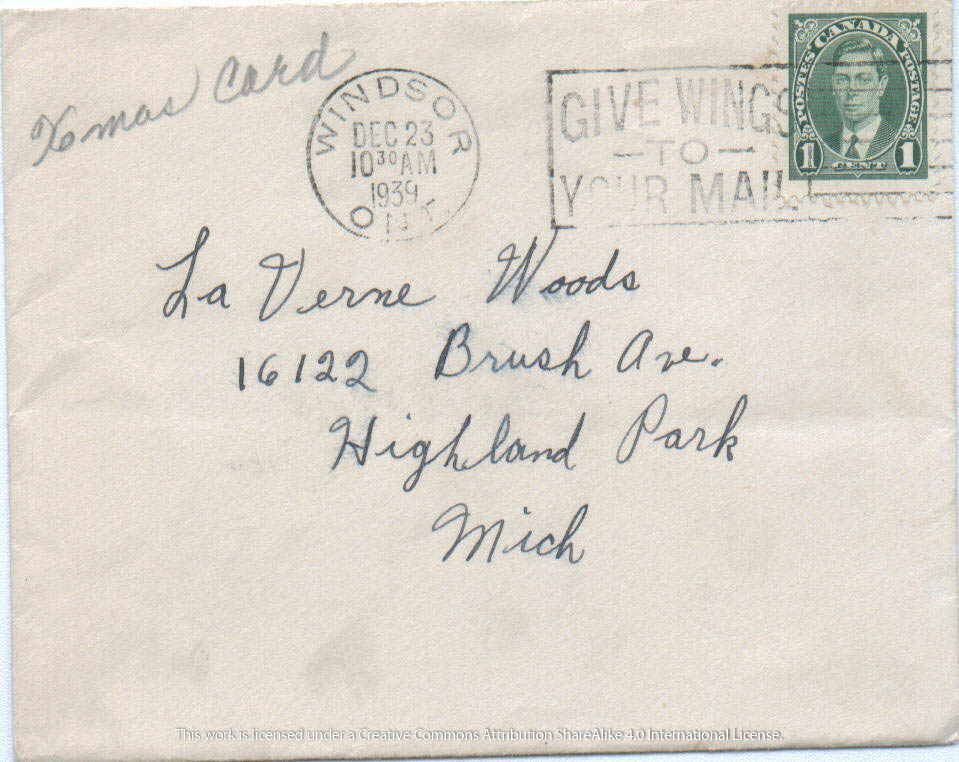 Xmas Card
WINDSOR
DEC 23
10 30 AM
1939
ONT.
GIVE WINGS
— TO —
YOUR MAIL!
POSTES CANADA POSTAGE
1 CENT 1
La Verne Woods
16122 Brush Ave.
Highland Park
Mich
This work is licensed under a Creative Commons Attribution ShareAlike 4.0 International License.